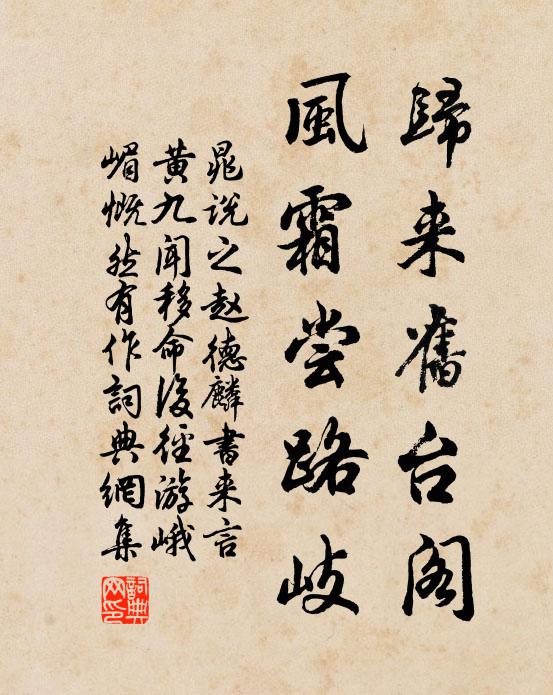 歸来舊台阁
風霜尝路岐
晁说之赵德麟書来言
黄九闻移命後径游峨
嵋慨然有作詞典網集
詞典网印